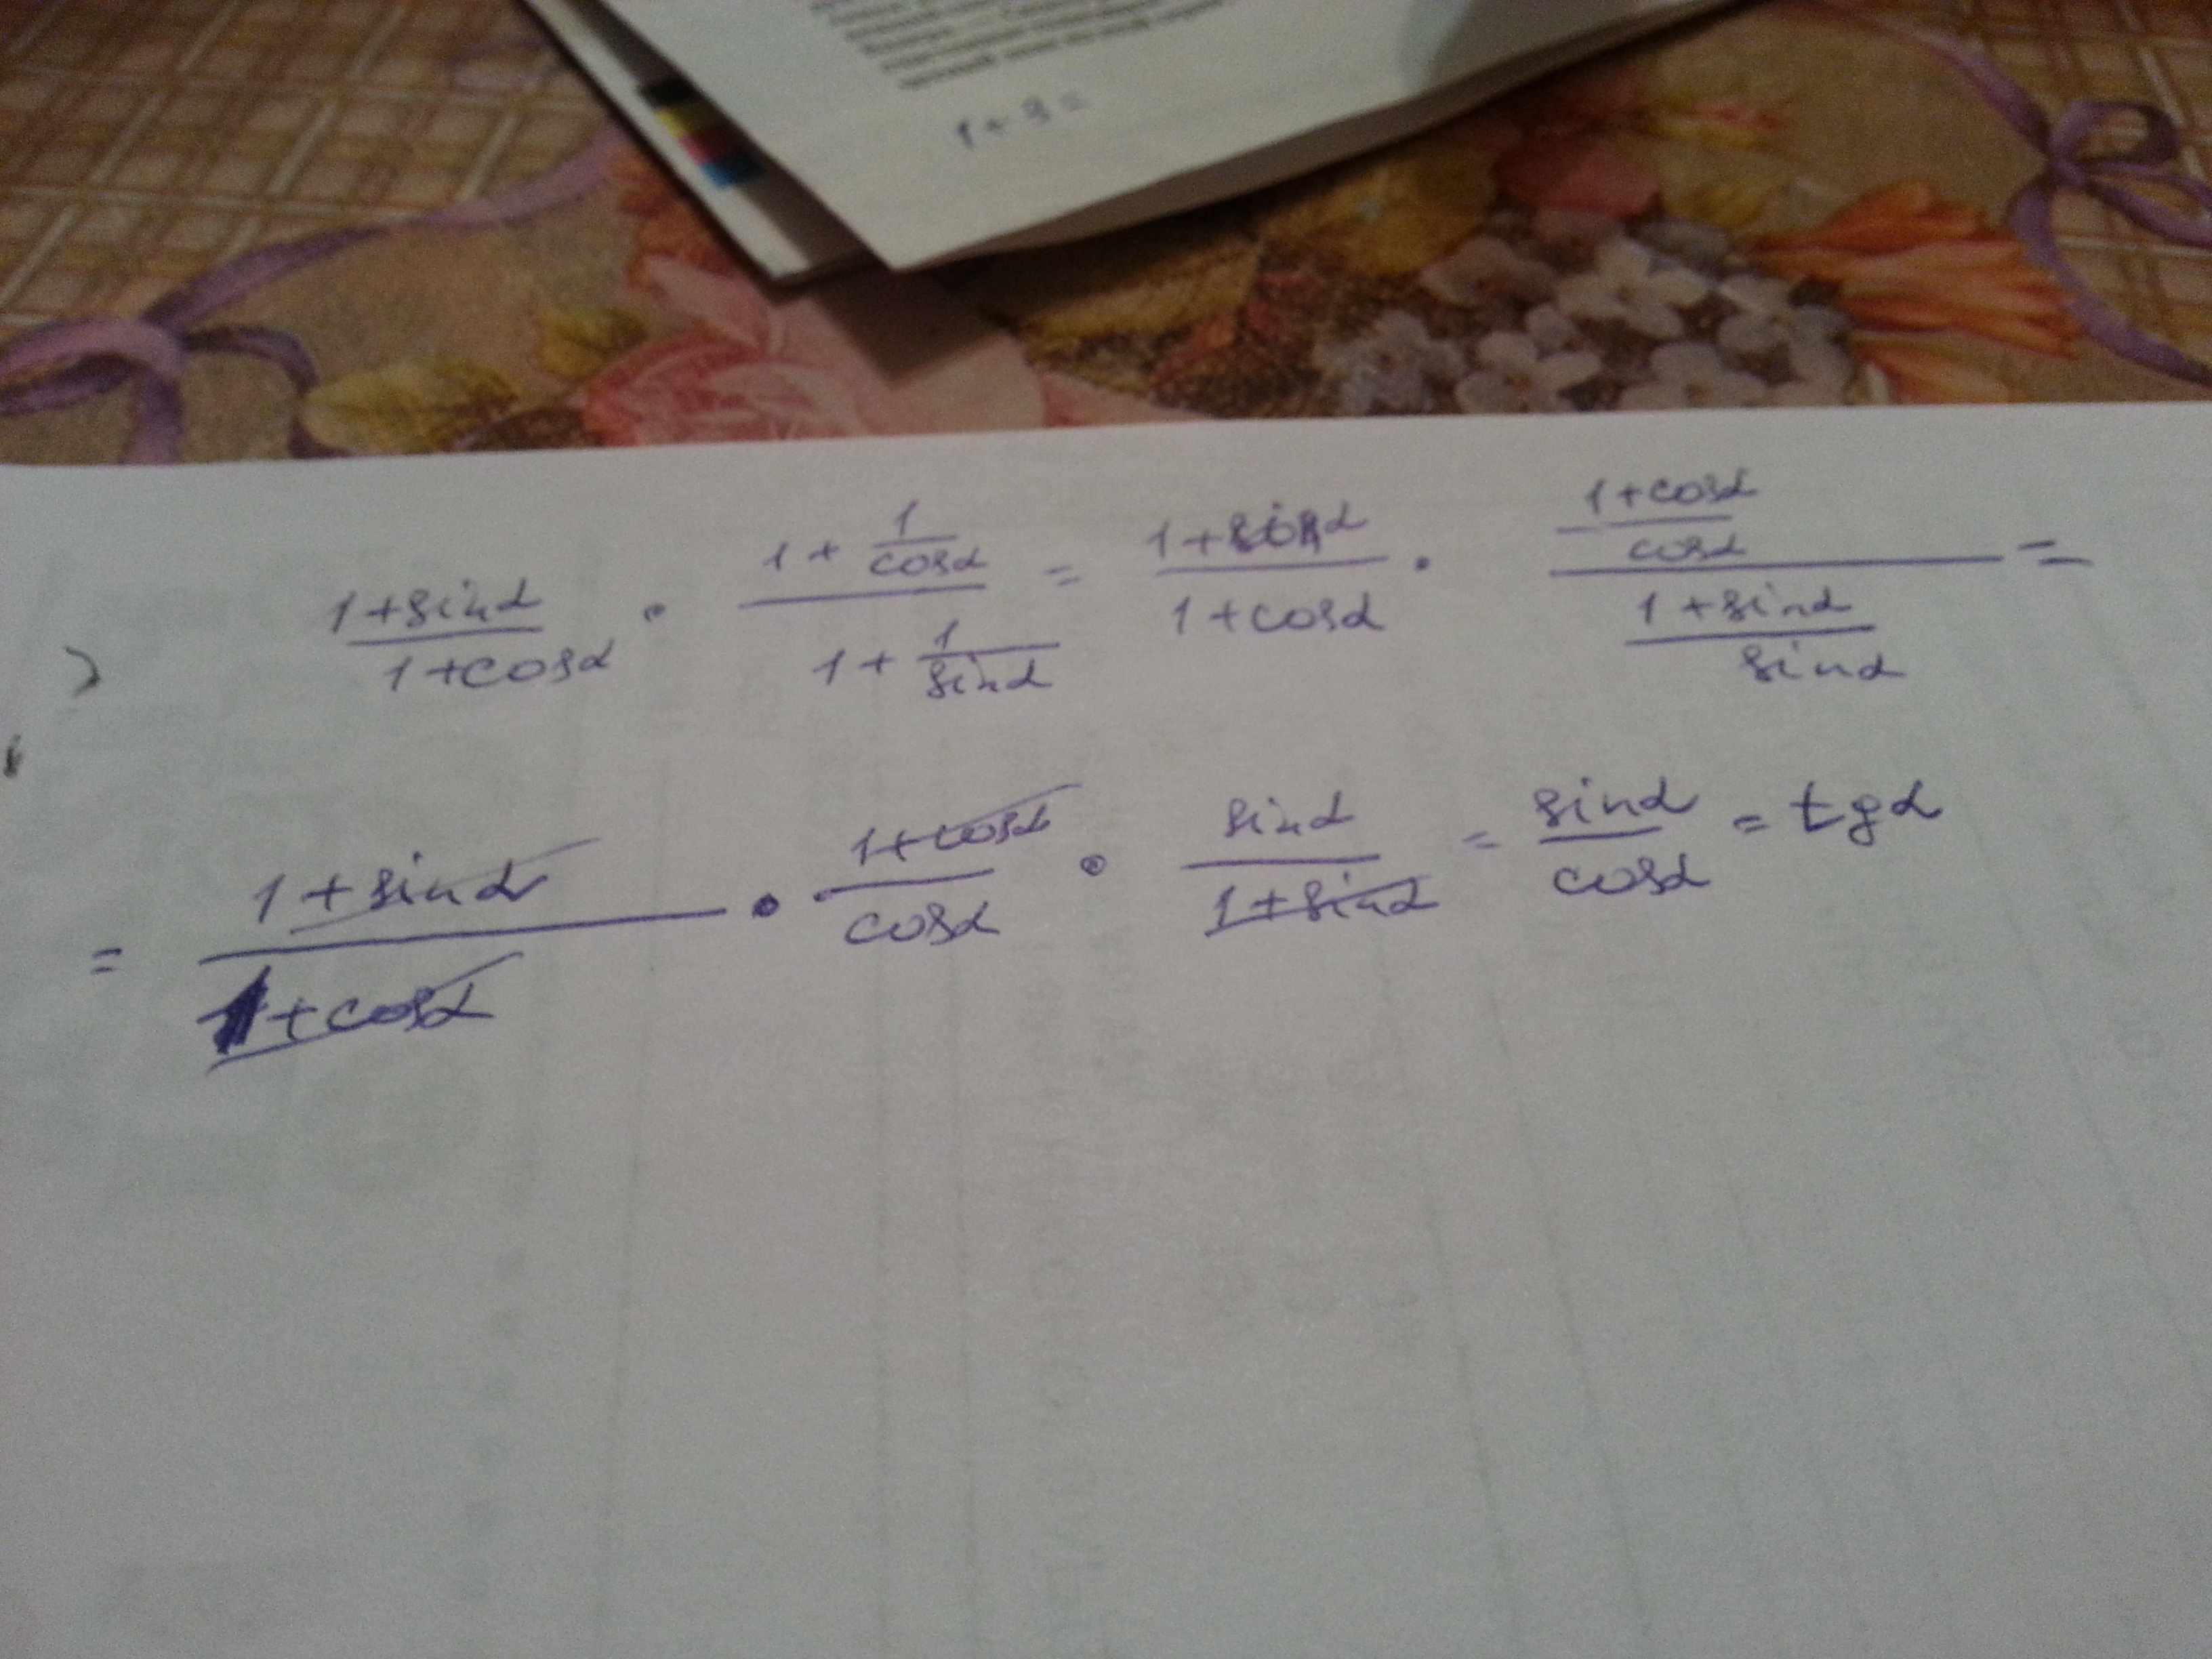 1 + 3 =
(1+sinα)/(1+cosα) · (1 + 1/cosα)/(1 + 1/sinα) = (1+sinα)/(1+cosα) · ((1+cosα)/cosα)/((1+sinα)/sinα) =
= (1+sinα)/(1+cosα) · (1+cosα)/cosα · sinα/(1+sinα) = sinα/cosα = tgα